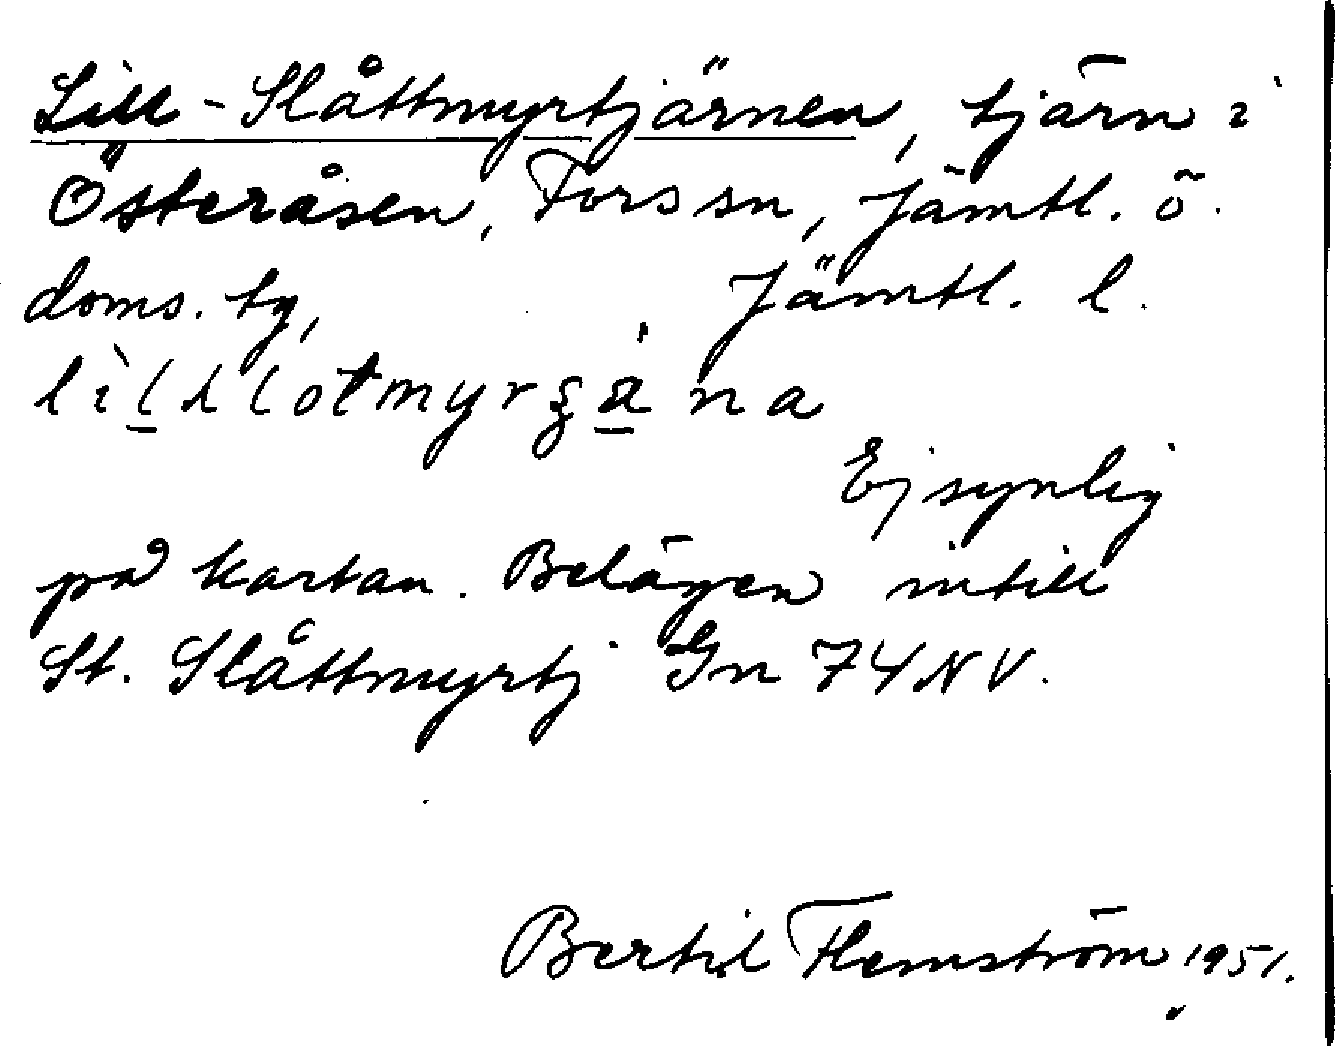 Lill-Slåttmyrtjärnen, tjärn i
Österåsen, Fors sn, Jämtl. ö.
doms. tg, Jämtl. l.
Ej synlig
på kartan. Belägen intill
St. Slåttmyrtj Gn 74 NV.
Bertil Flemström 1951.